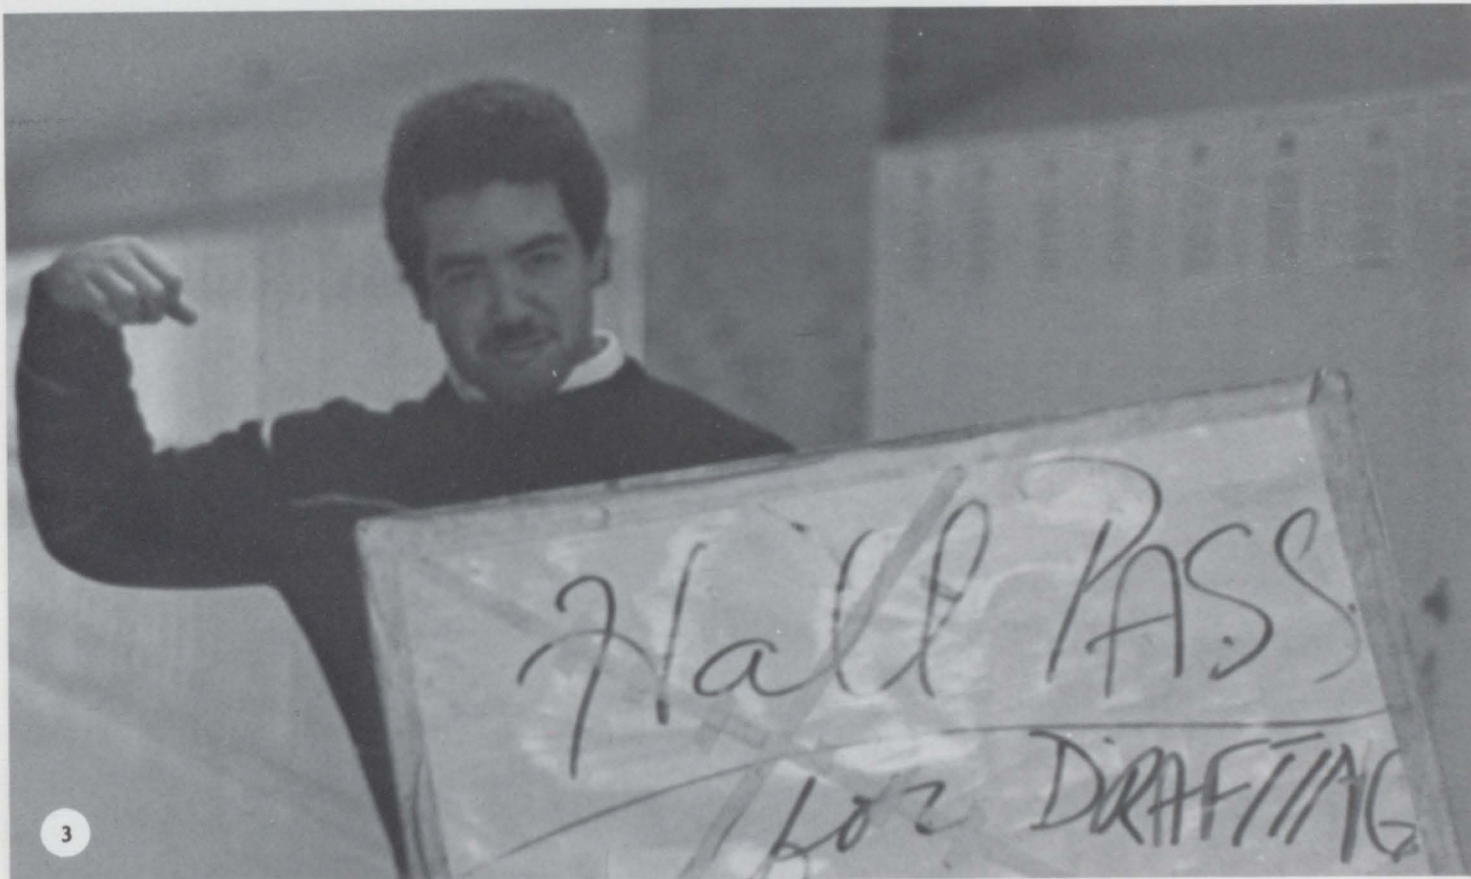 Hall PASS
for DRAFTING
3